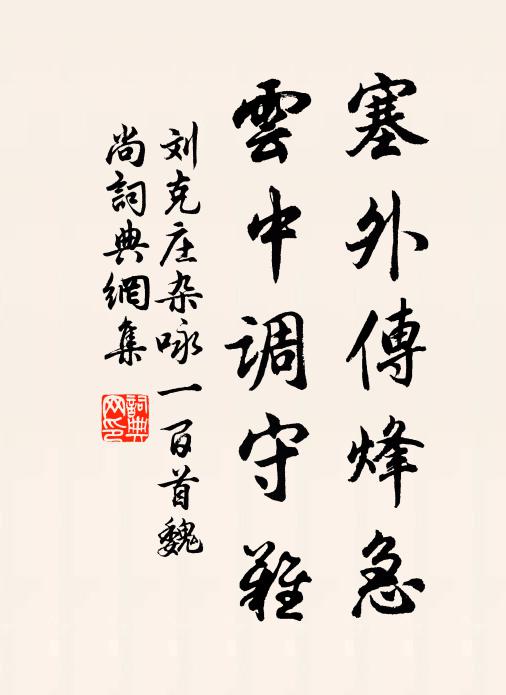 塞外傳烽急
雲中调守難
刘克庄杂咏一百首魏
尚詞典網集
詞典
网印